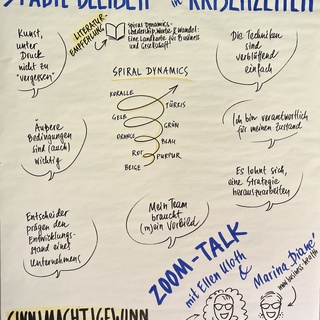 STABIL BLEIBEN in KRISENZEITEN
Kunst,
unter
Druck
nicht zu
"vergessen"
LITERATUR-
EMPFEHLUNG
Spiral Dynamics -
Leadership, Werte & Wandel:
Eine Landkarte für Business
und Gesellschaft
Die Techniken
sind
verblüffend
einfach
SPIRAL DYNAMICS
KORALLE
TÜRKIS
GELB
GRÜN
ORANGE
BLAU
ROT
PURPUR
BEIGE
Äußere
Bedingungen
sind (auch)
wichtig
Ich bin verantwortlich
für meinen Zustand
Es lohnt sich,
eine Strategie
herauszuarbeiten
Mein Team
braucht
(m)ein Vorbild
Entscheider
prägen den
Entwicklungs-
stand eines
Unternehmens
ZOOM-TALK
mit Ellen Uloth
&
Marina Diané
SINN|MACHT|GEWINN